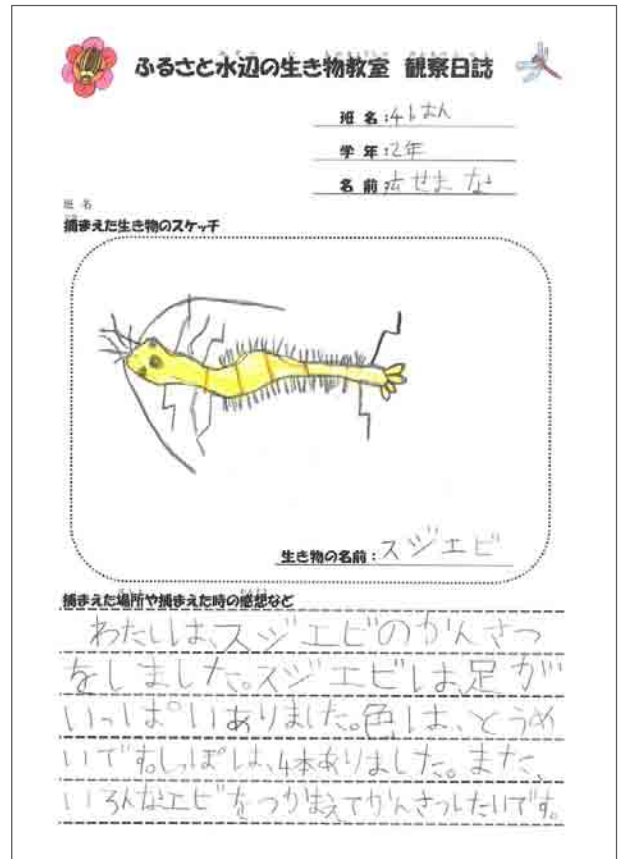 ふるさと水辺の生き物教室 観察日誌
班 名:4はん
学 年:2年
名 前:
班 名
捕まえた生き物のスケッチ
生き物の名前:スジエビ
捕まえた場所や捕まえた時の感想など
わたしは、スジエビのかんさつ
をしました。スジエビは足が
いっぱいありました。色は、とうめ
いです。しっぽは、4本ありました。また、
いろんなエビをつかまえてかんさつしたいです。